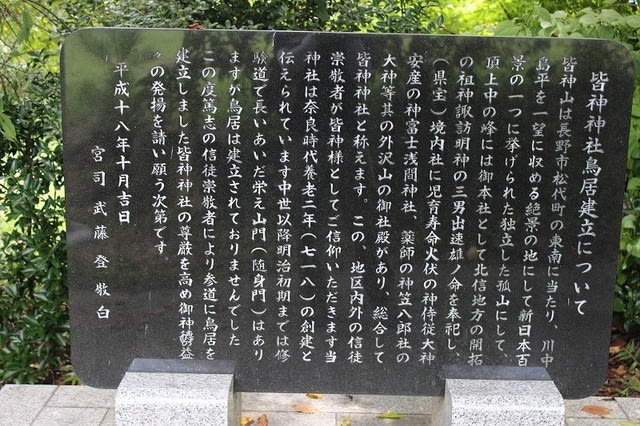 皆神神社鳥居建立について
皆神山は長野市松代町の東南に当たり、川中
島平を一望に収める絶景の地にして新日本百
景の一つに挙げられた独立した孤山にして、
頂上中の峰には御本社として北信地方の開拓
の祖神諏訪明神の三男出速雄ノ命を奉祀し、
（県宝）境内社に児育寿命火伏の神侍従大神
安産の神富士浅間神社、薬師の神笠八郎社の
大神等其の外沢山の御社殿があり、総合して
皆神神社と称えます。この、地区内外の信徒
崇敬者が皆神様としてご信仰いただきます当
神社は奈良時代養老二年（七一八）の創建と
伝えられています中世以降明治初期までは修
験道で長いあいだ栄え山門（随身門）はあり
ますが鳥居は建立されておりませんでした
この度篤志の信徒崇敬者により参道に鳥居を
建立しました皆神神社の尊厳を高め御神
益
々の発揚を請い願う次第です。
平成十八年十月吉日
宮司 武藤登敬白